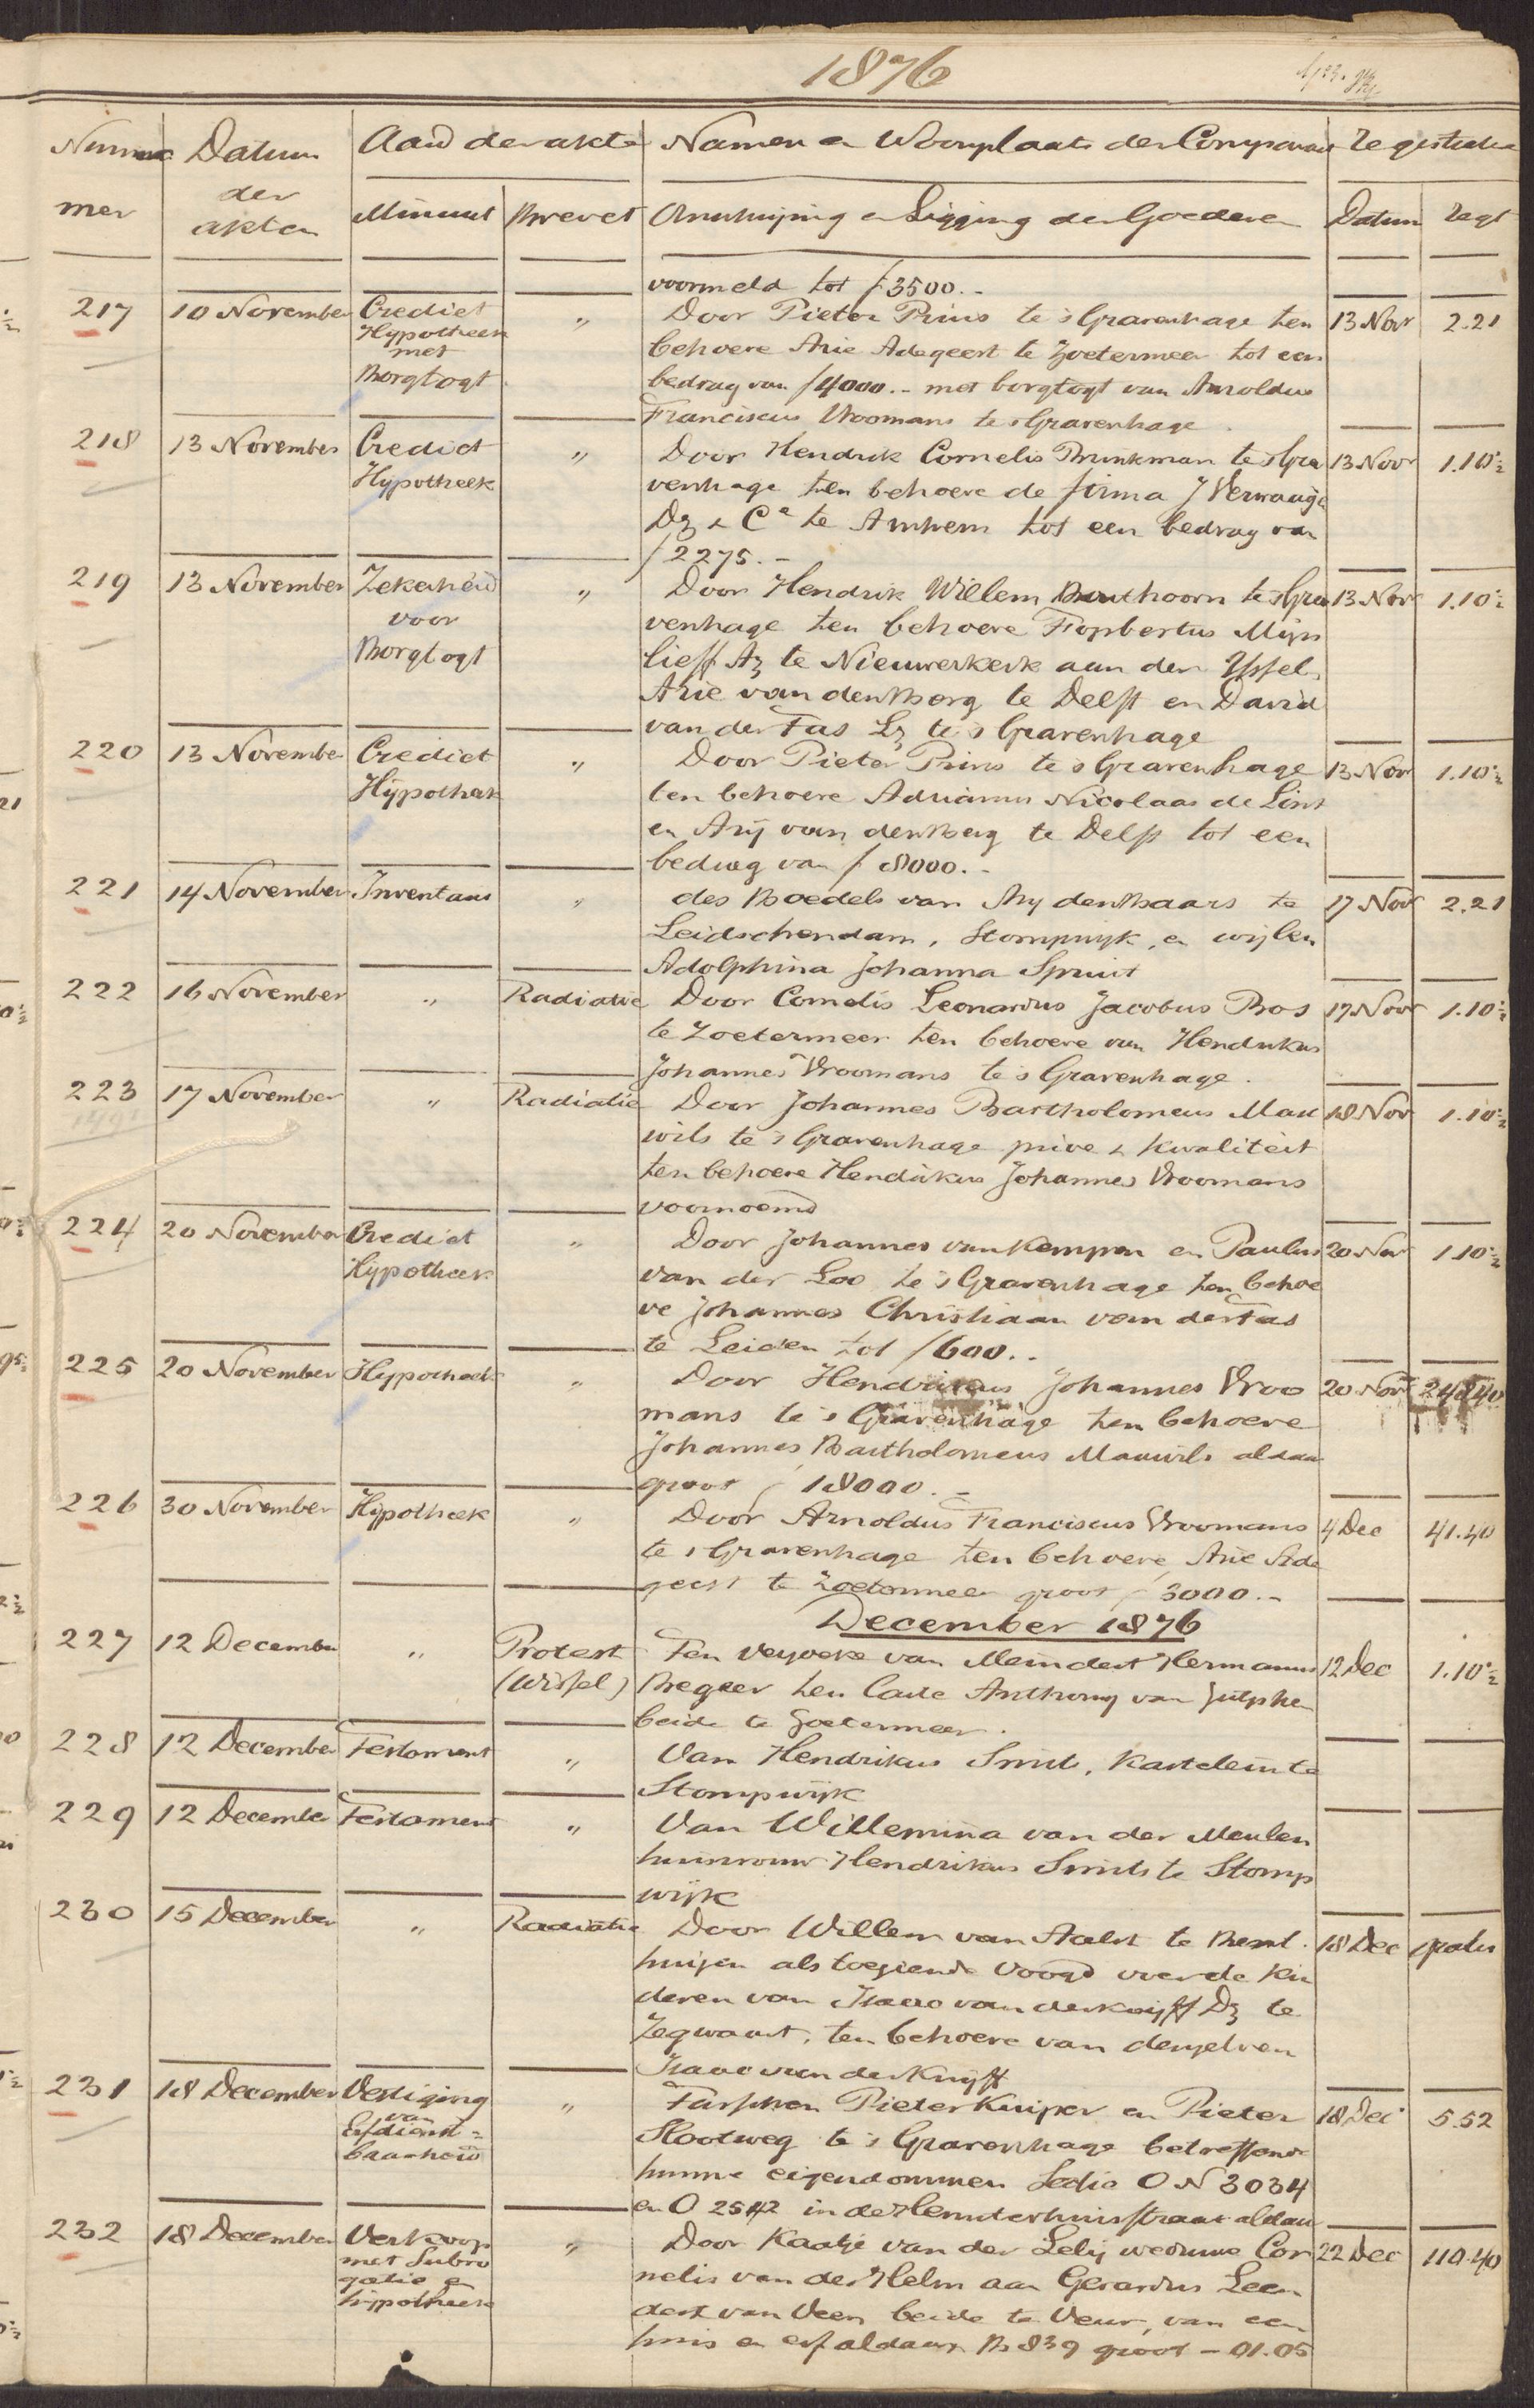 1876
Num Datum Aard der akte Namen en Woonplaats der Comparan Registratie
mer der akten Minuut Brevet Omschrijving en Ligging der Goederen Datum Regt
voormeld tot f 3500.-
217 10 November Crediet Hypotheek met Borgtogt " Door Pieter Prins te 's Gravenhage ten 13 Nov 2.21
behoeve Arie Adegeest te Zoetermeer tot een
bedrag van f 4000.- met borgtogt van Arnoldus
Franciscus Vroomans te 's Gravenhage.
218 13 November Crediet Hypotheek " Door Hendrik Cornelis Brinkman te 's Gra 13 Nov 1.10½
venhage ten behoeve de firma J Verwaaije
Dz & Ce te Arnhem tot een bedrag van
f 2275.-
219 13 November Zekerheid voor Borgtogt " Door Hendrik Willem Bouthoorn te 's Gra 13 Nov 1.10½
venhage ten behoeve Fopbertus Mijn
lieff Az te Nieuwerkerk aan den IJssel
Arie van den Berg te Delft en David
van der Tas Lz te 's Gravenhage
220 13 November Crediet Hypotheek " Door Pieter Prins te 's Gravenhage 13 Nov 1.10½
ten behoeve Adrianus Nicolaas de Lint
en Arij van den Berg te Delft tot een
bedrag van f 8000.-
221 14 November Inventaris " des Boedels van Arij den Baars te 17 Nov 2.21
Leidschendam, Stompwijk, en wijlen
Adolphina Johanna Spruit
222 16 November " Radiatie Door Cornelis Leonardus Jacobus Bos 17 Nov 1.10½
te Zoetermeer ten behoeve van Hendrikus
Johannes Vroomans te 's Gravenhage.
223 17 November " Radiatie Door Johannes Bartholomeus Mau 18 Nov 1.10½
wils te 's Gravenhage prive & kwaliteit
ten behoeve Hendrikus Johannes Vroomans
voornoemd
224 20 November Crediet Hypotheek " Door Johannes van Kempen en Paulus 20 Nov 1.10½
van der Loo te 's Gravenhage ten behoe
ve Johannes Christiaan van der Tas
te Leiden tot f 600.-
225 20 November Hypotheek " Door Hendrikus Johannes Vroo 20 Nov 248.40
mans te 's Gravenhage ten behoeve
Johannes Bartholomeus Mauwils aldaar
groot f 18000.-
226 30 November Hypotheek " Door Arnoldus Franciscus Vroomans 4 Dec 41.40
te 's Gravenhage ten behoeve Arie Ade
geest te Zoetermeer groot f 3000.-
December 1876
227 12 December " Protest (Wissel) Ten verzoeke van Meindert Hermanus 12 Dec 1.10½
Begeer ten laste Anthony van Zutphen
beide te Zoetermeer.
228 12 December Testament " Van Hendrikus Smits, Kastelein te
Stompwijk
229 12 December Testament " Van Willemina van der Meulen
huisvrouw Hendrikus Smits te Stomp
wijk
230 15 December " Radiatie Door Willem van Aalst te Bent 18 Dec gratis
huizen als toeziende Voogd over de kin
deren van Isaac van der Kuijff Dz te
Zegwaart, ten behoeve van denzelven
Isaac van der Kuijff
231 18 December Vestiging van Erfdienst= baarheid " Tusschen Pieter Kuiper en Pieter 18 Dec 5.52
Slootweg te 's Gravenhage betreffende
hunne eigendommen Sectie O N 3034
en O 2542 in de Heemderhuisstraat aldaar
232 18 December Verkoop met Subro gatie en hypotheek " Door Kaatje van der Lelij weduwe Cor 22 Dec 110.40
nelis van der Helm aan Gerardus Leen
dert van Veen beide te Veur, van een
huis en erf aldaar B 839 groot - 01.05